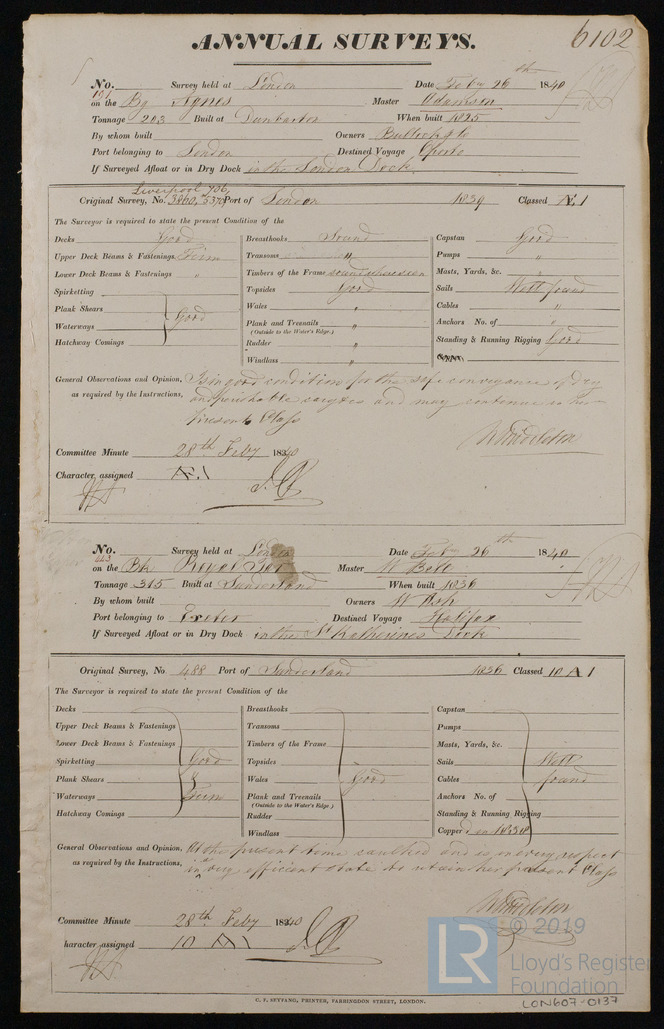 ANNUAL SURVEYS. 6102
No. 191 Survey held at London Date Feby 26th 1840
on the Bg Agnes Master Adamson
Tonnage 203 Built at Dunbarton When built 1825
By whom built Owners Bullock & Co
Port belonging to London Destined Voyage Oporto
If Surveyed Afloat or in Dry Dock in the London Dock.
Liverpool 706,
Original Survey, No. 3860, 5370 Port of London 1839 Classed Æ 1
The Surveyor is required to state the present Condition of the
Decks Good Breasthooks Sound Capstan Good
Upper Deck Beams & Fastenings Firm Transoms " Pumps "
Lower Deck Beams & Fastenings " Timbers of the Frame sound where seen Masts, Yards, &c. "
Spirketting Topsides Good Sails Well found
Plank Shears Good Wales " Cables "
Waterways Plank and Treenails " Anchors No. of "
(Outside to the Water's Edge.)
Hatchway Comings Rudder " Standing & Running Rigging Good
Windlass "
General Observations and Opinion, Is in good condition for the safe conveyance of dry
as required by the Instructions, and perishable cargoes and may continue in her
Present Class
W Middleton
Committee Minute 28th Feby 1840
Character assigned Æ 1
No. 443 Survey held at London Date Feby 26th 1840
on the Bk Royal Tar Master W Bell
Tonnage 315 Built at Sunderland When built 1836
By whom built Owners W Ash
Port belonging to Exeter Destined Voyage Halifax
If Surveyed Afloat or in Dry Dock in the St Katherines Dock
Original Survey, No. 488 Port of Sunderland 1836 Classed 10 A 1
The Surveyor is required to state the present Condition of the
Decks Breasthooks Capstan
Upper Deck Beams & Fastenings Transoms Pumps
Lower Deck Beams & Fastenings Timbers of the Frame Masts, Yards, &c.
Spirketting Good Topsides Sails Well
Plank Shears & Wales Good Cables found
Waterways Firm Plank and Treenails Anchors No. of
(Outside to the Water's Edge.)
Hatchway Comings Rudder Standing & Running Rigging
Windlass Copperd in 1838
General Observations and Opinion, At the present time and is in every respect
as required by the Instructions, in a very efficient state to retain her present Class
W Middleton
Committee Minute 28th Feby 1840
Character assigned 10 A 1
© 2019
LR Lloyd's Register
Foundation
LON607-0137
C. F. SEYFANG, PRINTER, FARRINGDON STREET, LONDON.